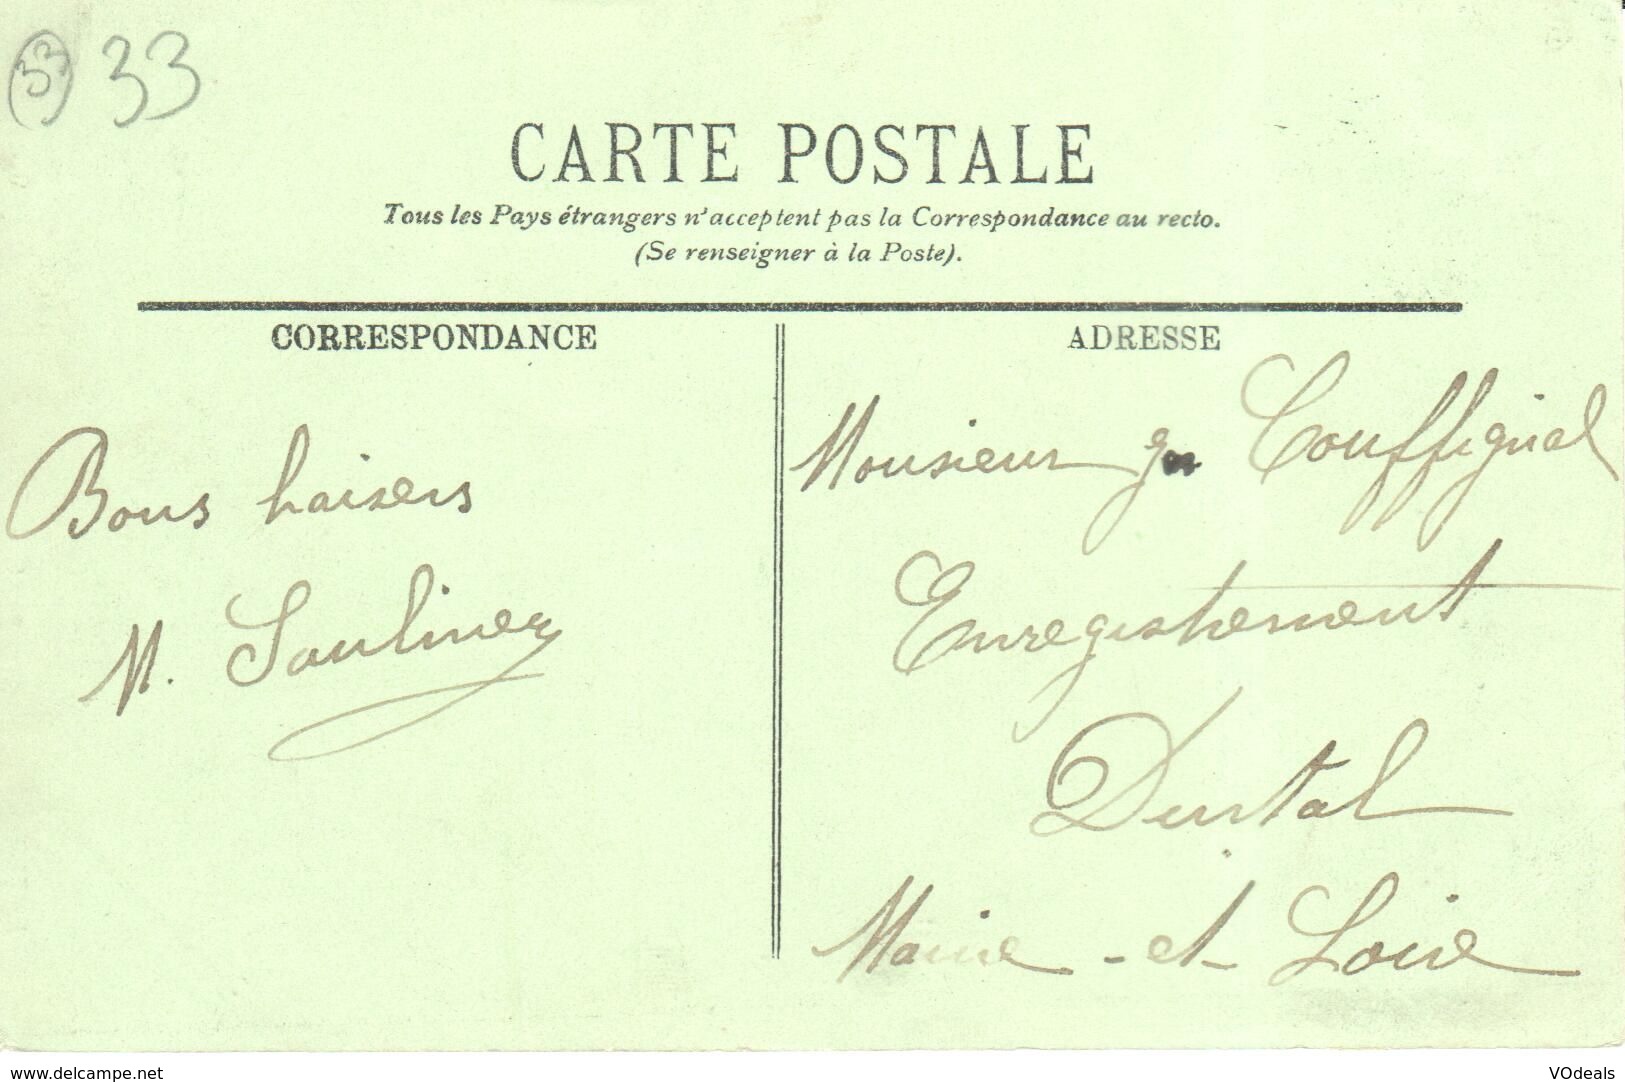 33 33
CARTE POSTALE
Tous les Pays étrangers n'acceptent pas la Correspondance au recto.
(Se renseigner à la Poste).
CORRESPONDANCE
Bons baisers
M.
ADRESSE
Monsieur Couffignal
Enregistrement
Durtal
Maine-et-Loire
delcampe.net
VOdeals